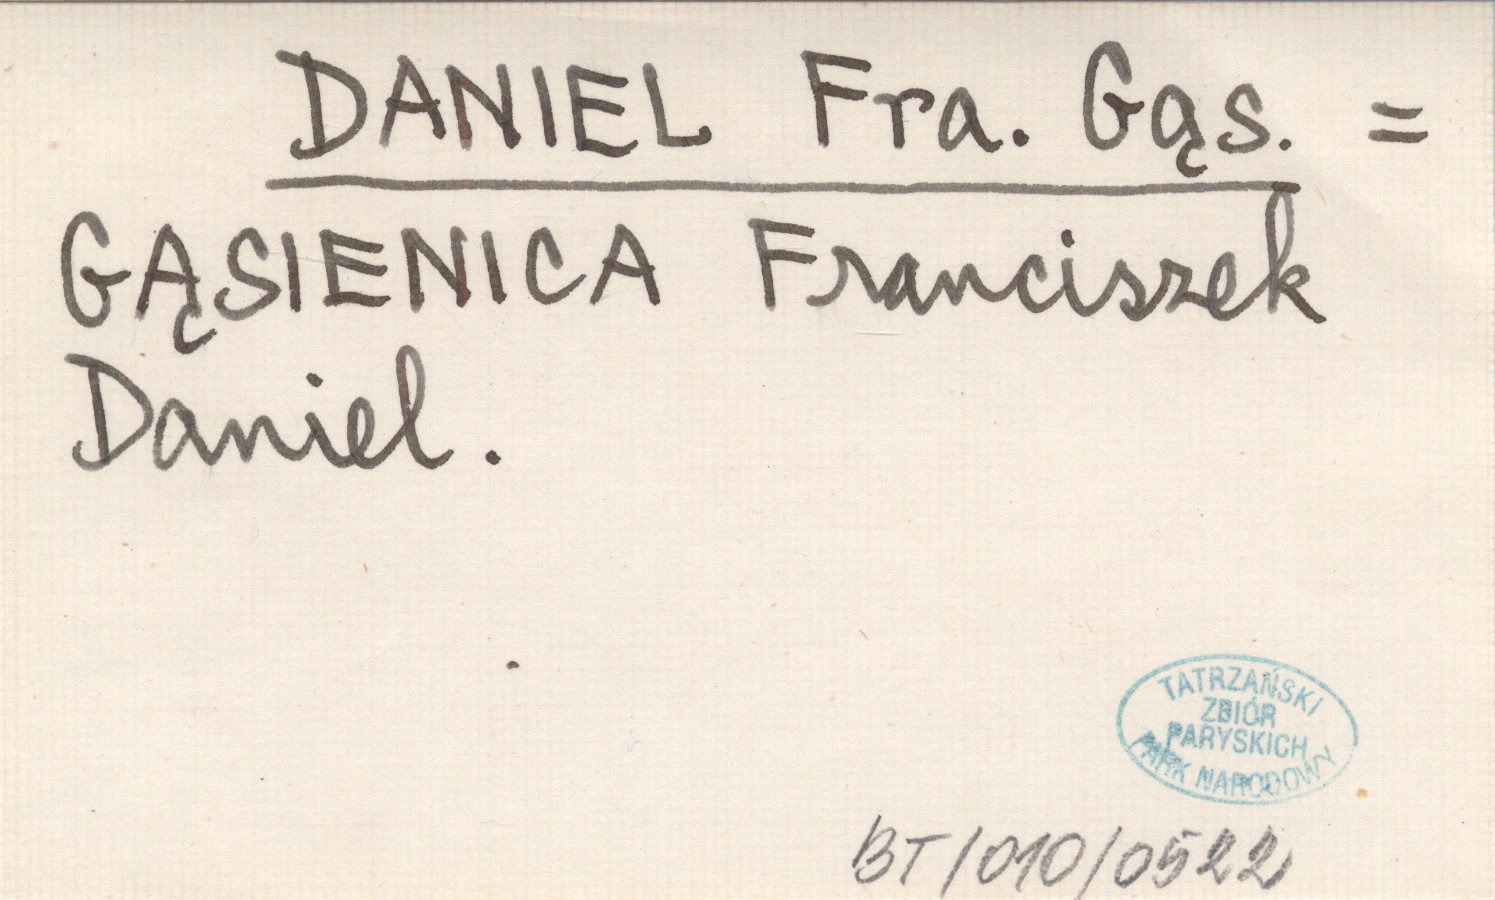 DANIEL Fra. Gąs. =
GĄSIENICA Franciszek
Daniel.
TATRZAŃSKI
ZBIÓR
PARYSKICH
PARK NARODOWY
BT/010/0522